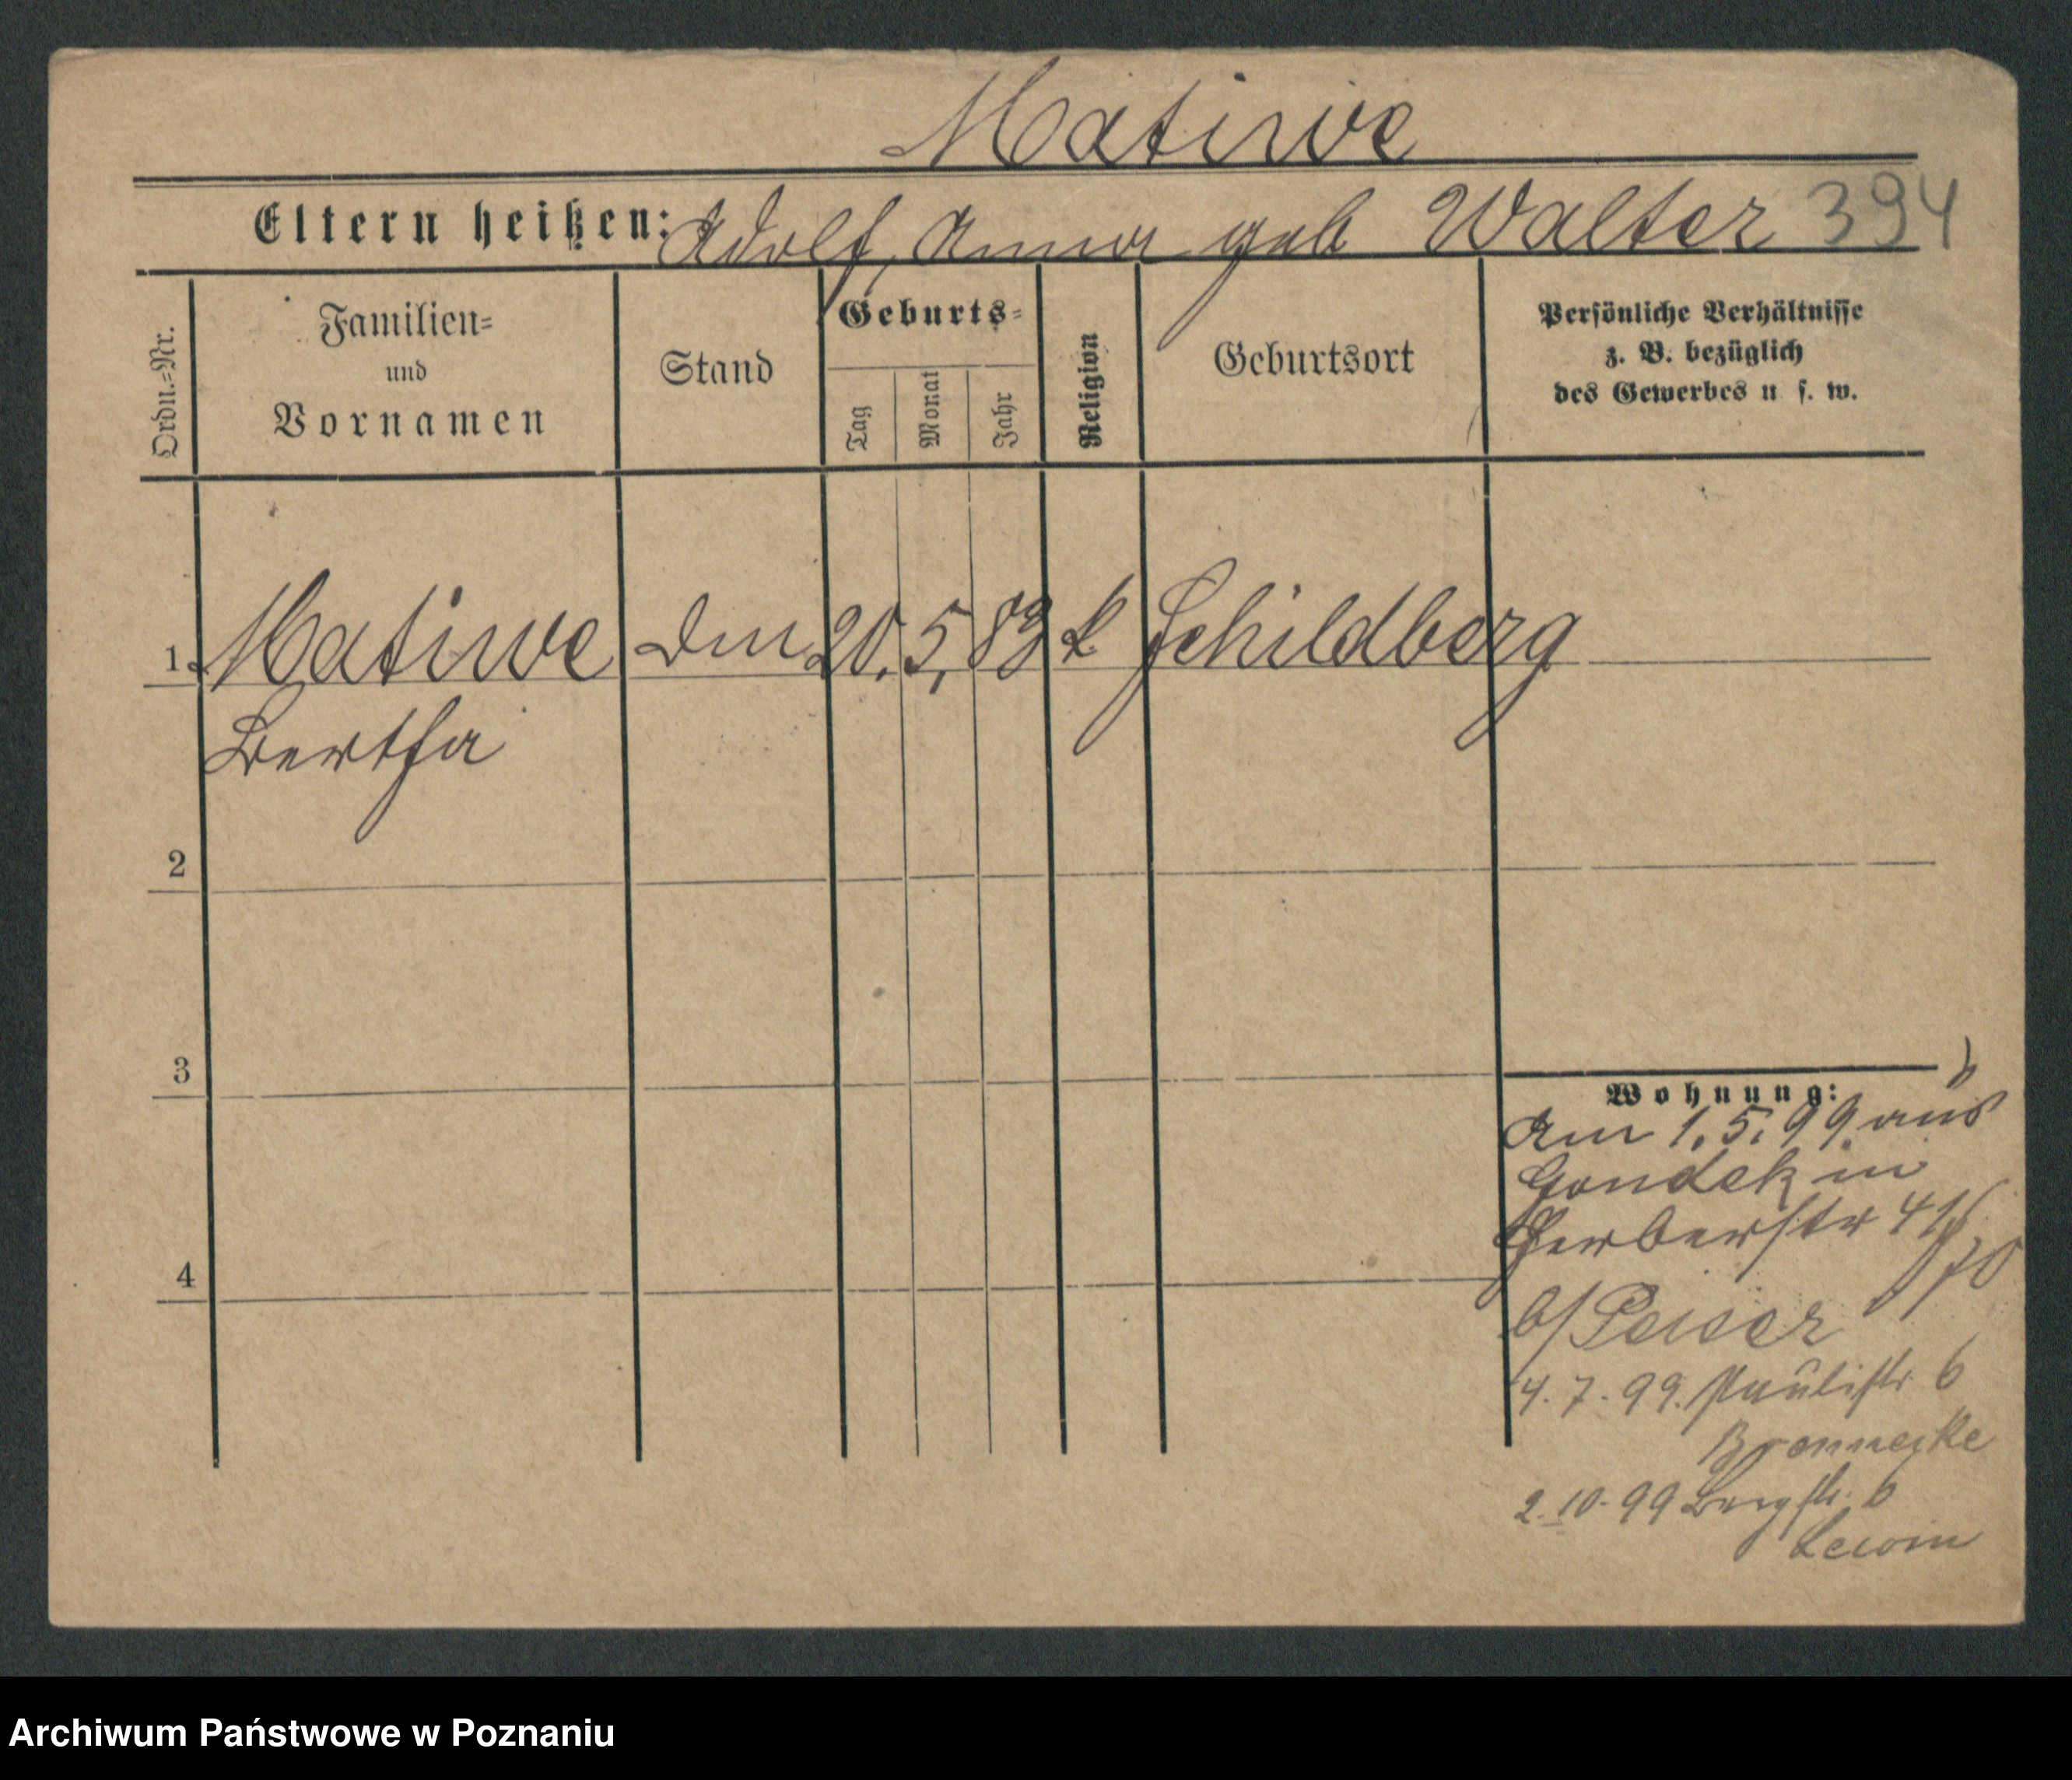 Matiwe
Eltern heißen: Adolf, Anna geb Walter 394
Ordn.-Nr.
Familien-
und
Vornamen
Stand
Geburts-
Tag
Monat
Jahr
Religion
Geburtsort
Persönliche Verhältnisse
z. B. bezüglich
des Gewerbes u s. w.
1 Matiwe 20. 5. 83 k Schildberg
Bertha
2
3
4
Wohnung:
Am 1. 5. 99. aus
Gondek in
Gerberstr
b/ Peiser
4. 7. 99. Paulistr 6
2. 10. 99 Bergstr. 6
Lewin
Archiwum Państwowe w Poznaniu